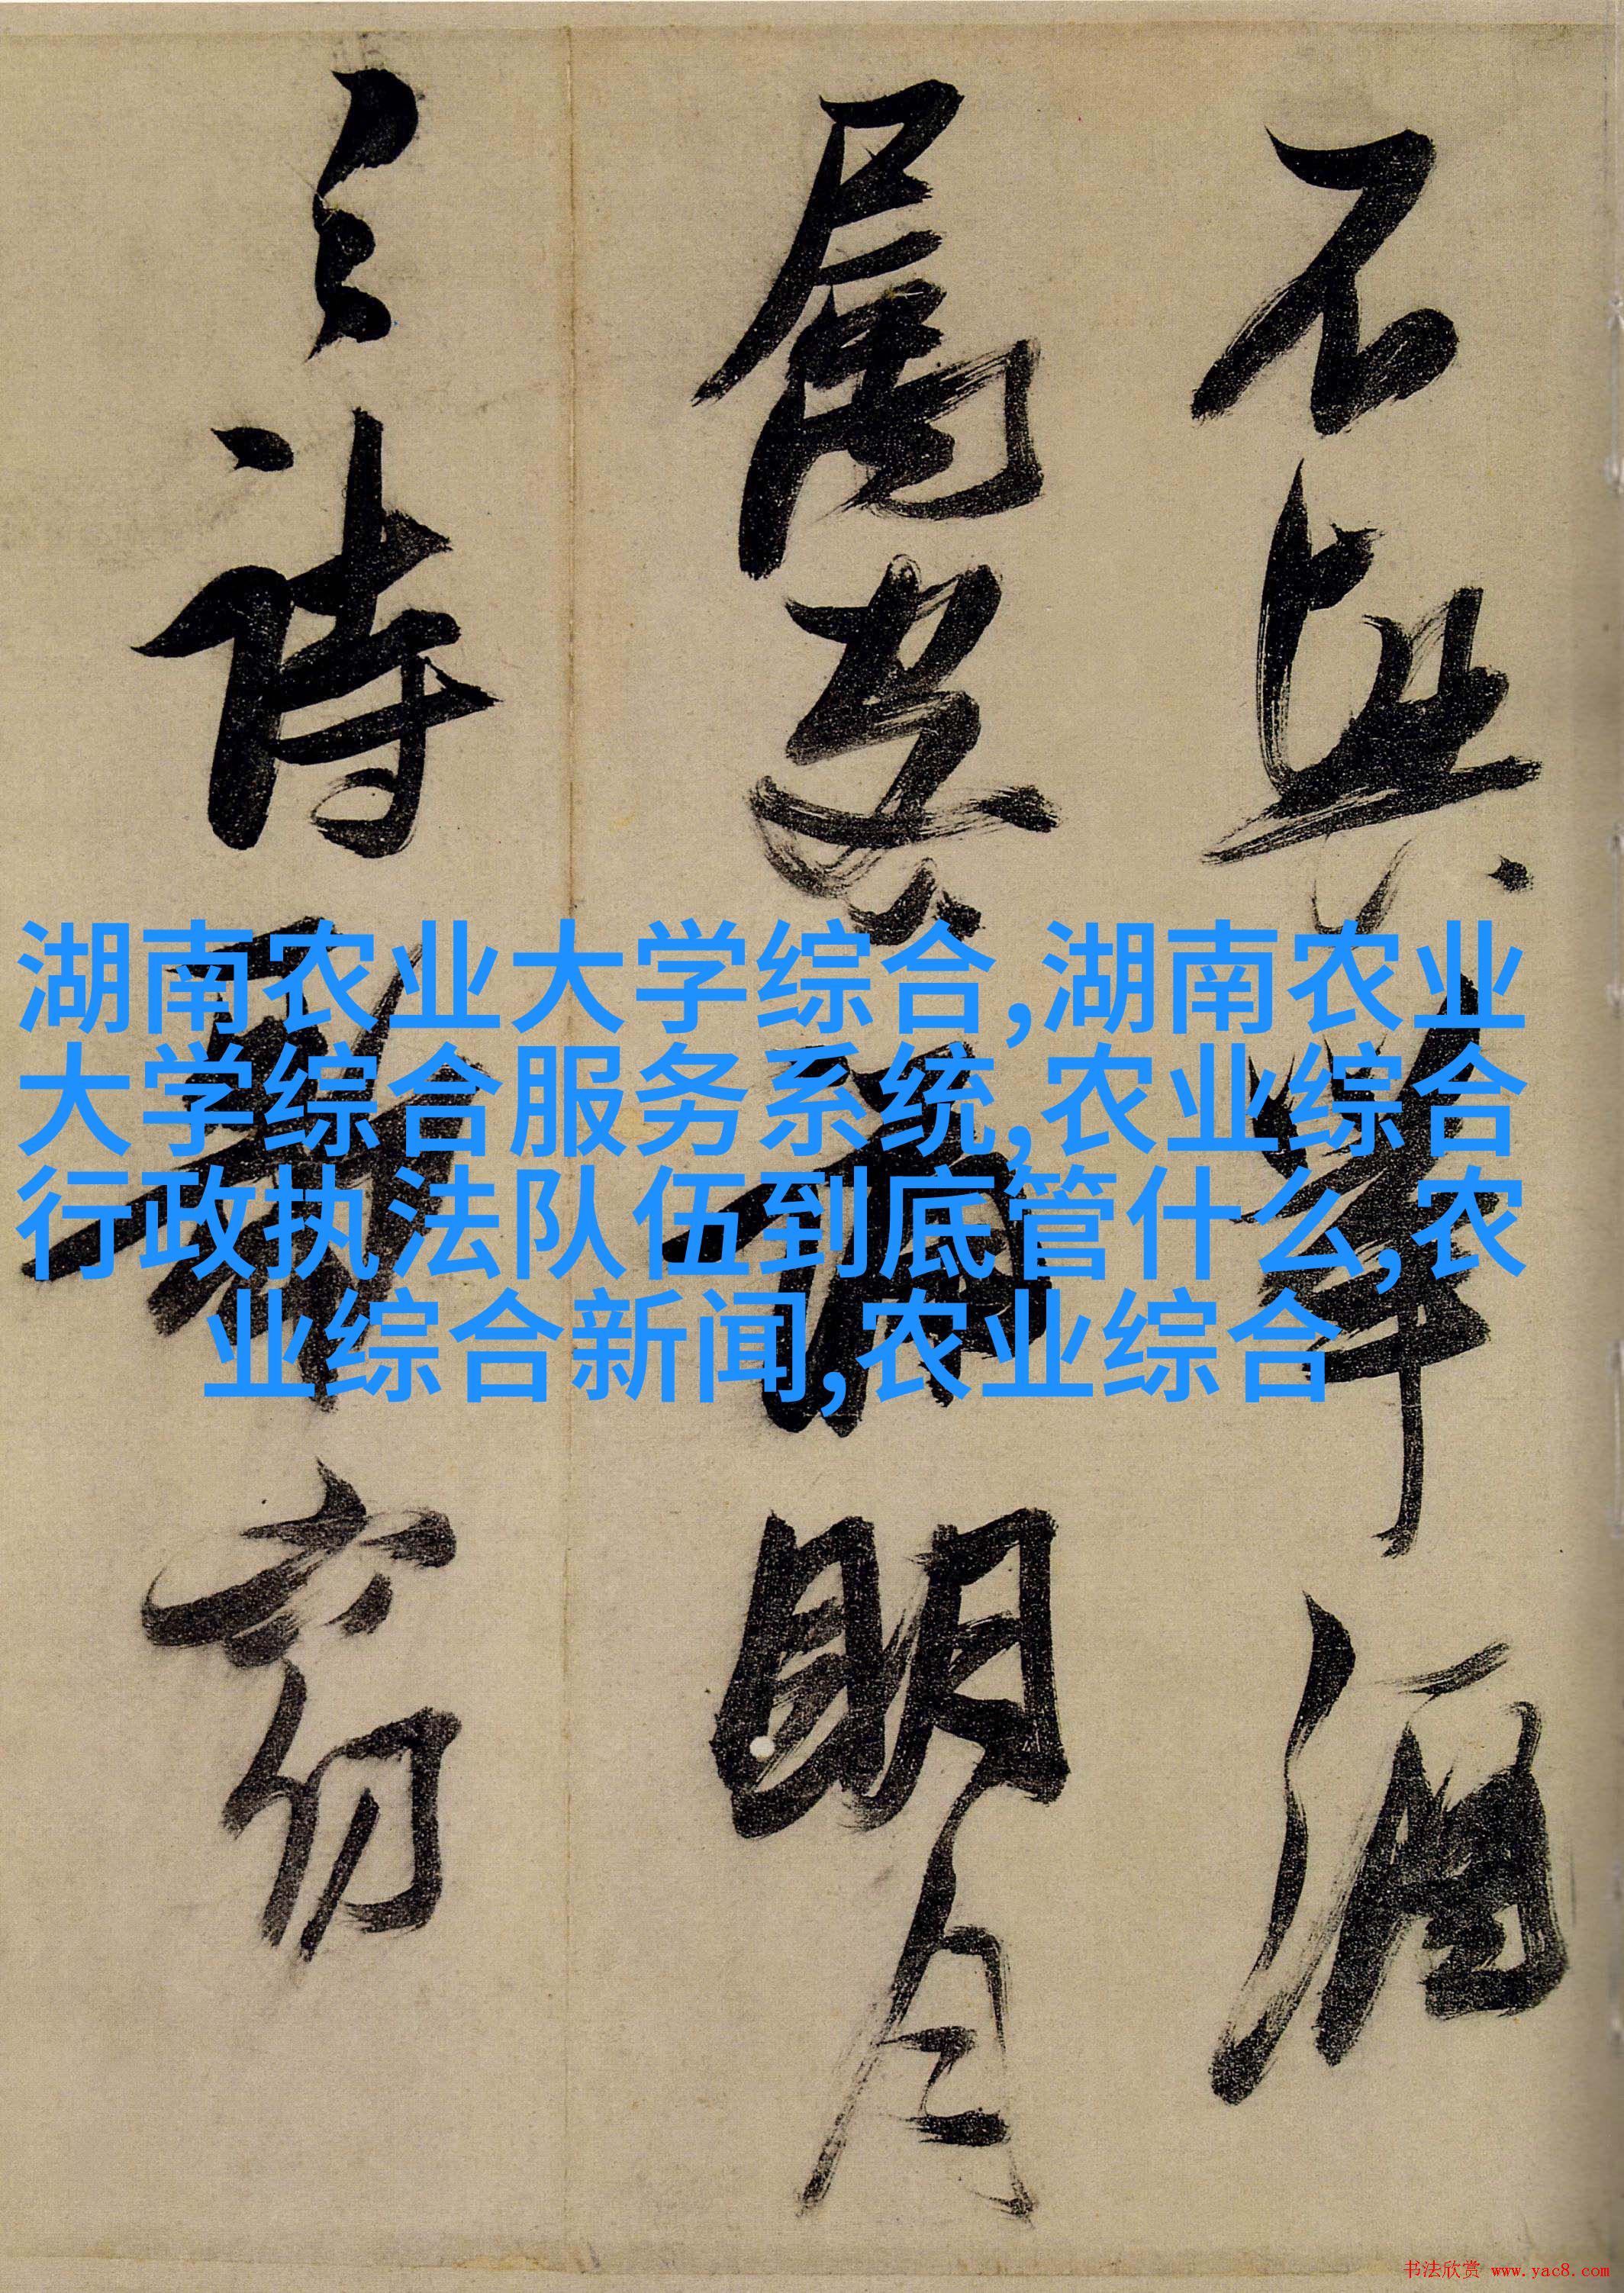 不興舉酒
屬客誦明月
之詩歌窈
湖南农业大学综合,湖南农业
大学综合服务系统,农业综合
行政执法队伍到底管什么,农
业综合新闻,农业综合
书法欣赏 www.yac8.com